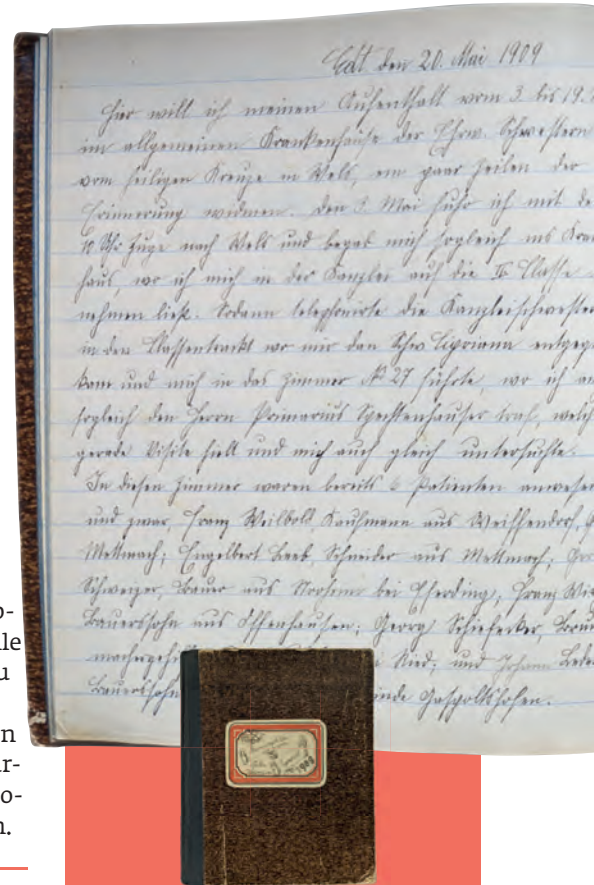 Edt. den 20. Mai 1909
Hier will ich meinen Aufenthalt vom 3. bis 19.
im allgemeinen Krankenhause der Ehrw. Schwestern
vom heiligen Kreuze in Wels, ein paar Zeilen der
Erinnerung widmen. Den 3. Mai fuhr ich mit de
10 Uhr Zuge nach Wels und begab mich sogleich ins Kran
haus, wo ich mich in der Kanzlei auf die Classe
nehmen ließ. Sodann telephonirte die Kanzleischwester
in den Classentrackt wo mir dan Schw Cipriana entgege
kam und mich in das Zimmer № 27 führte, wo ich au
sogleich den Herrn Primarius Spechtenhauser traf, welch
gerade Visite hielt und mich auch gleich untersuchte.
In diesen Zimmer waren bereits 6 Patienten anwesen
und zwar, Franz Weilbold, Kaufmann aus Weiffendorf,
Mettmach; Engelbert Schneider aus Mettmach;
Schweizer, Bauer aus bei Eferding; Franz
Bauerssohn aus Offenhausen; Georg Schiefecker,
Ried; und Johann
Bauerssohn inde Gaspoltshofen.
o-
lle
u
n
r-
o-
n.
1909